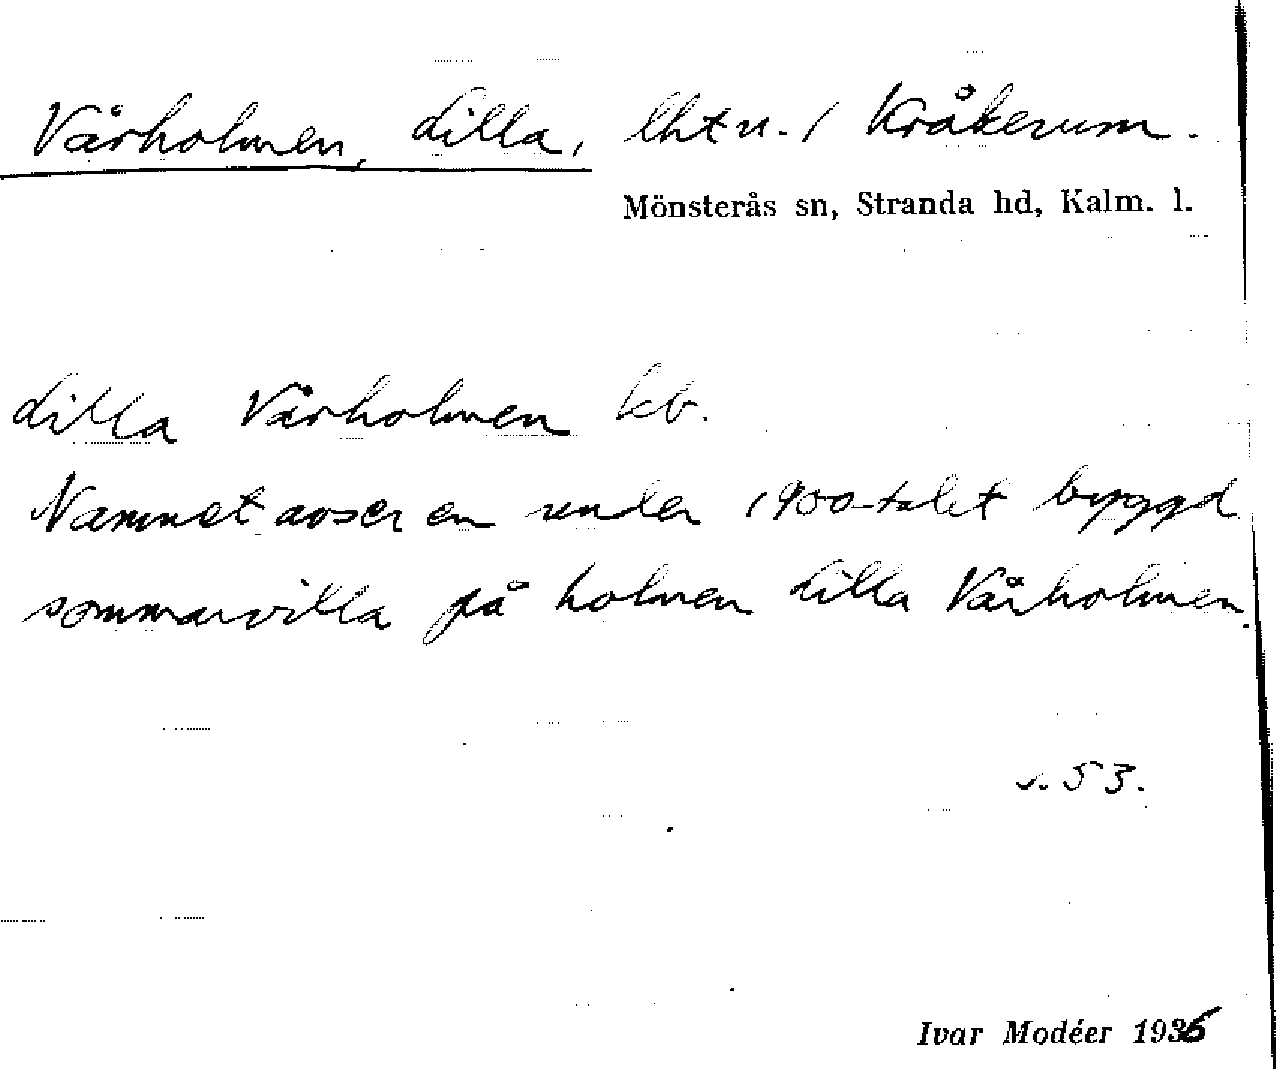 Vårholmen, Lilla, lht u. / Kråkerum.
Mönsterås sn, Stranda hd, Kalm. l.
Lilla Vårholmen kb.
Namnet avser en under 1900-talet byggd
sommarvilla på holmen Lilla Vårholmen.
s. 53.
Ivar Modéer 1936